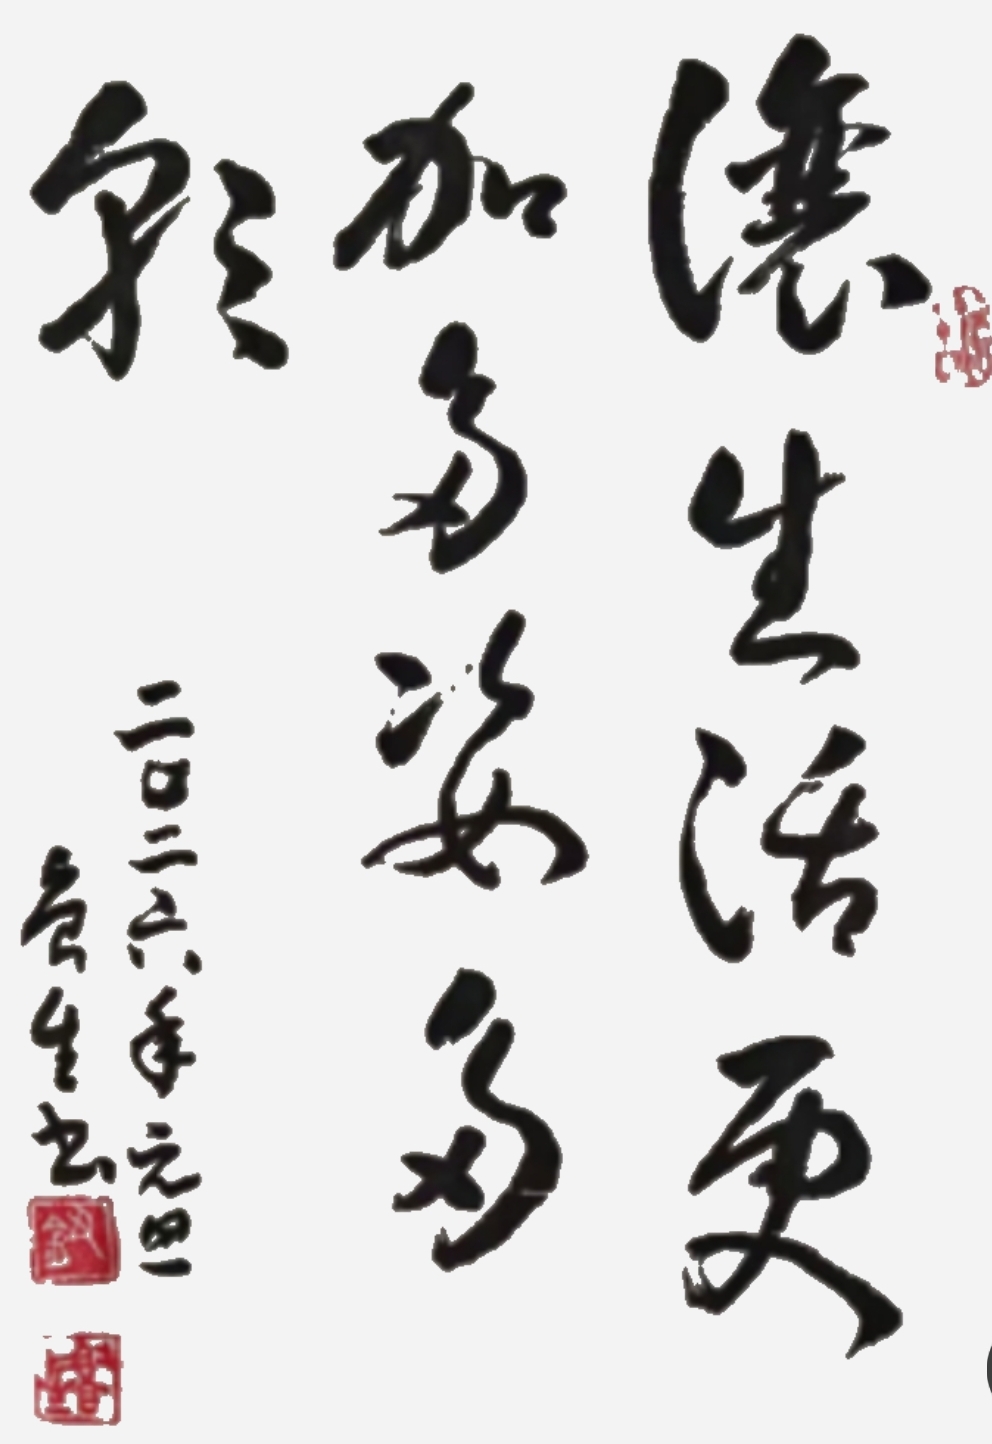 讓生活更
加多姿多
彩
二〇二六年元旦
生书